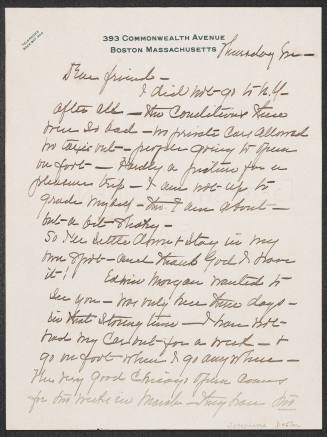 393 Commonwealth Avenue
Boston Massachusetts
Thursday Eve —
Dear friend —
I did not go to N.Y.
after all — the Conditions there
were so bad — no private Cars allowed
no taxis out — people going to Opera
on foot — Hardly a picture for a
pleasure trip — I am not up to
grade myself — tho' I am about —
but a bit shaky —
So I'm better Alone & stay in my
own Spot — and thank God I have
it! Edwin Morgan wanted to
see you — was only here three days —
in that Stormy time — I have not
had my Car out for a week — &
go on foot when I go anywhere —
The very good Chicago Opera comes
for two weeks in March — They have